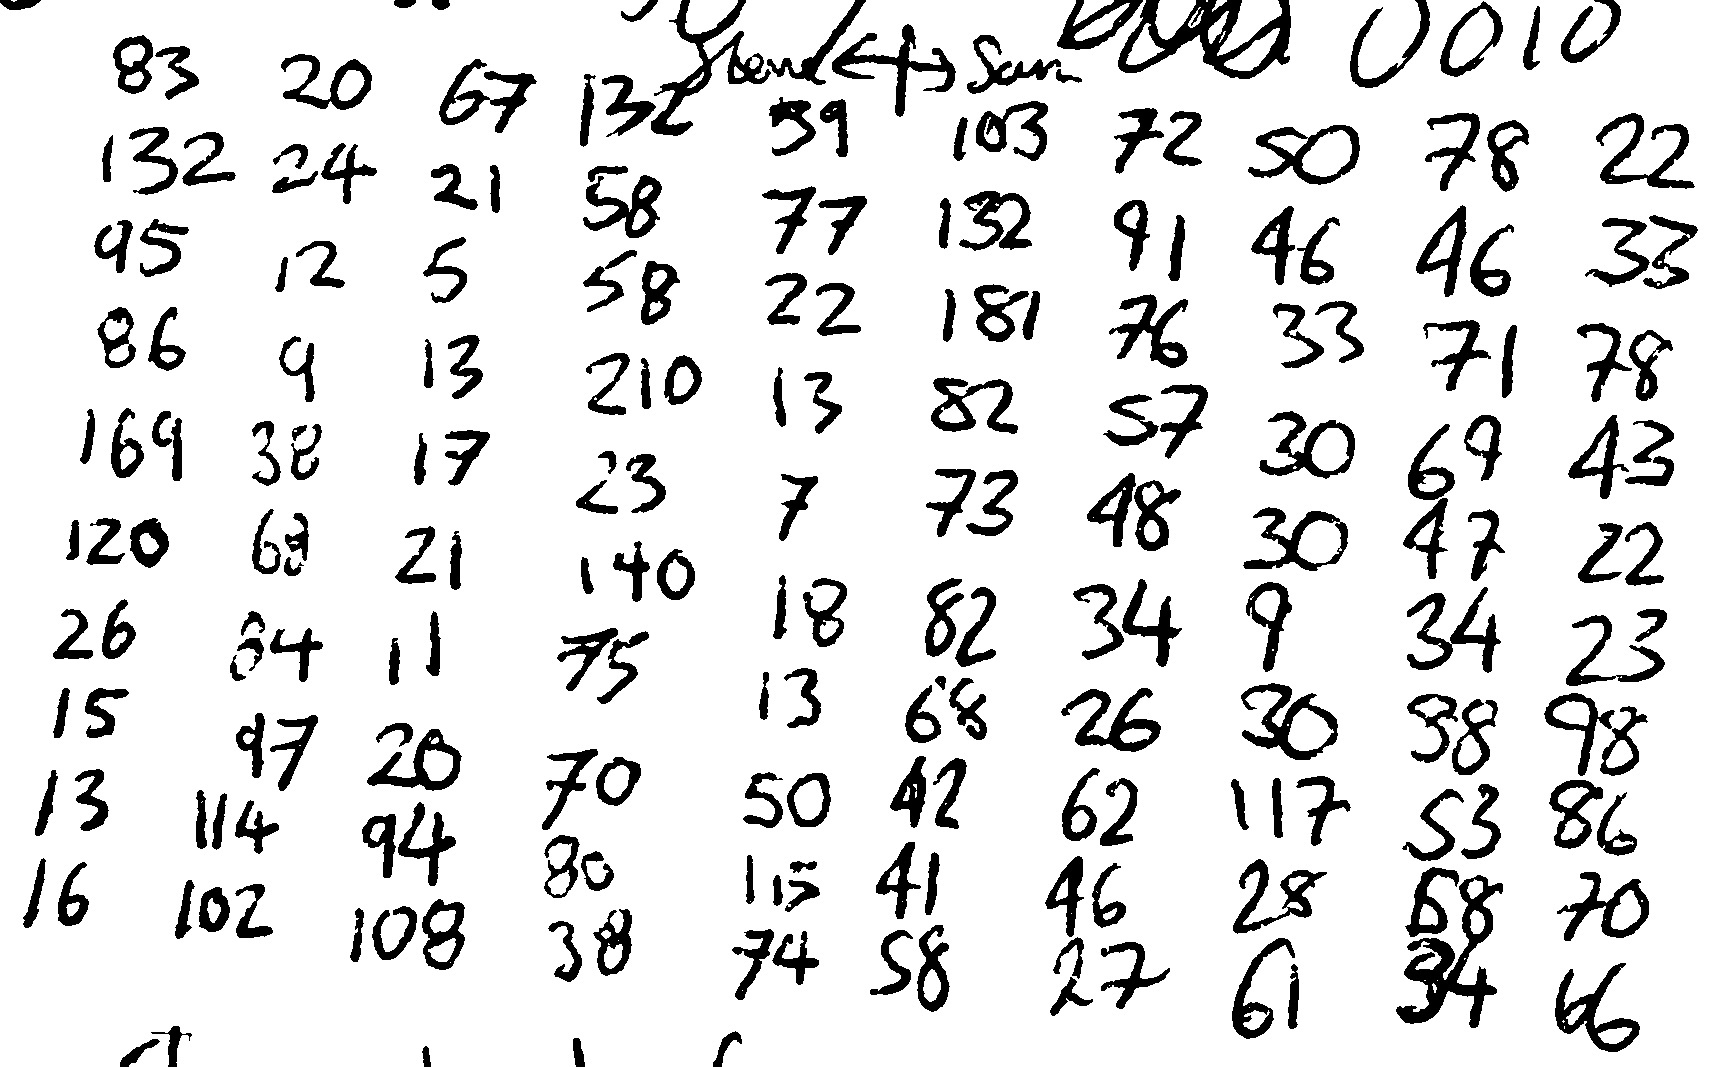 Steve ↔ Sam 0010
83 20 67 132 59 103 72 50 78 22
132 24 21 58 77 132 91 46 46 33
95 12 5 58 22 181 76 33 71 78
86 9 13 210 13 82 57 30 69 43
169 38 17 23 7 73 48 30 47 22
120 21 140 18 82 34 9 34 23
26 84 11 75 13 68 26 30 38 98
15 97 20 70 50 42 62 117 53 86
13 114 94 80 115 41 46 28 68 70
16 102 108 38 74 58 27 61 34 66